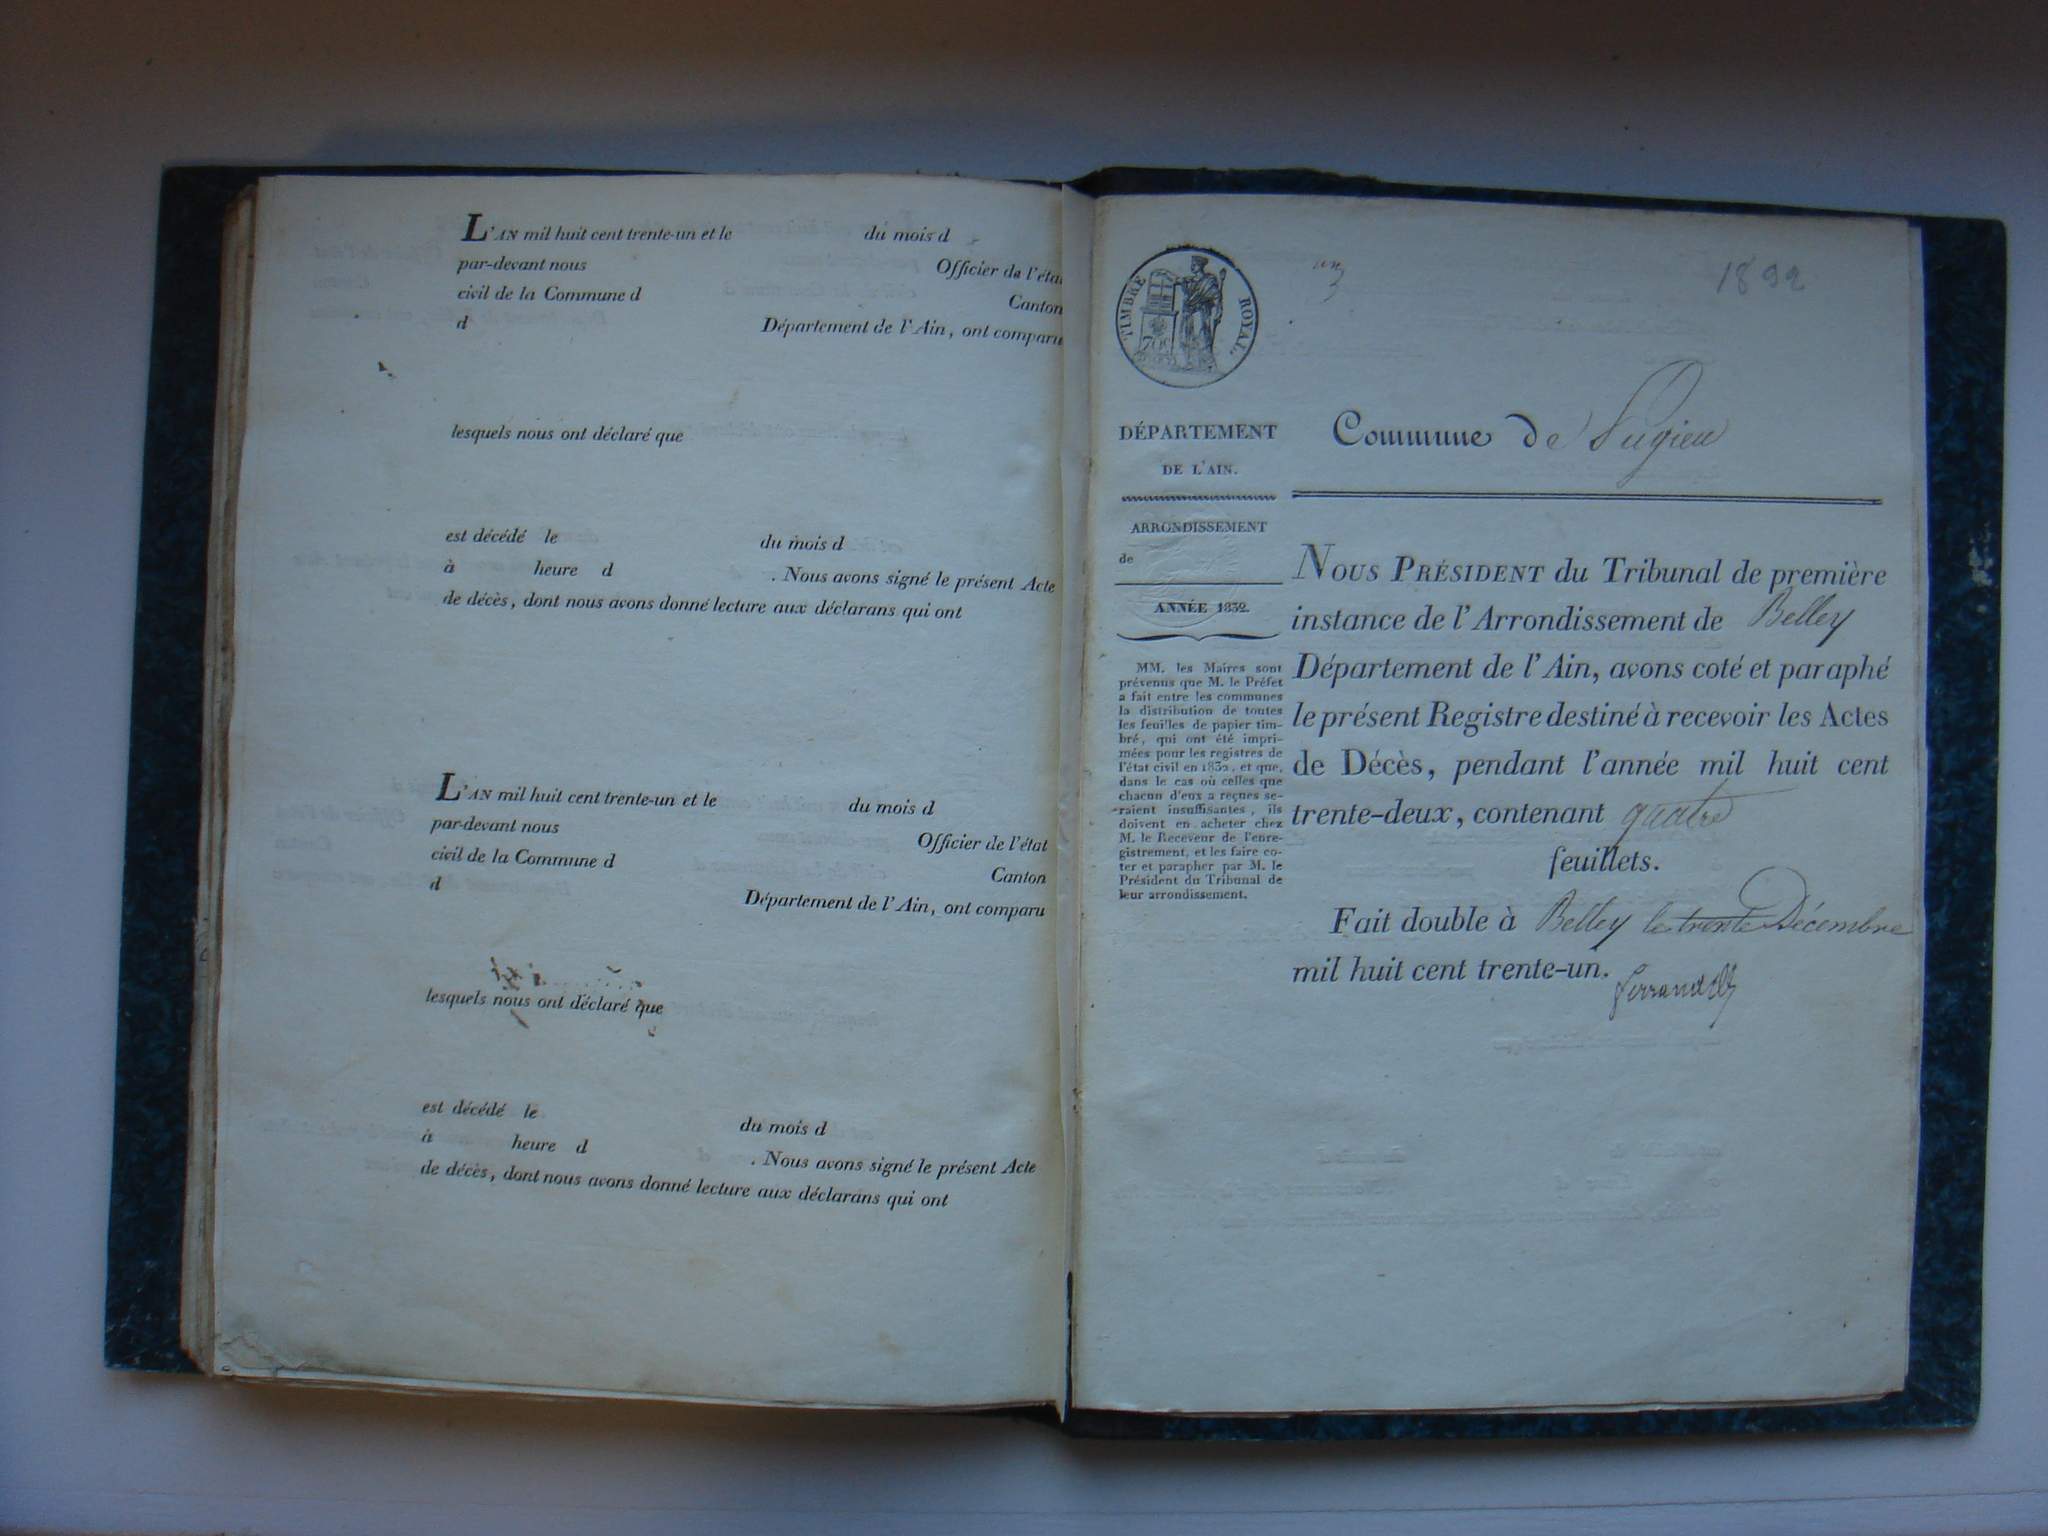 L'AN mil huit cent trente-un et le du mois d
par-devant nous Officier de l'état
civil de la Commune d Canton
d Département de l'Ain, ont comparu
lesquels nous ont déclaré que
est décédé le du mois d
à heure d . Nous avons signé le présent Acte
de décès, dont nous avons donné lecture aux déclarans qui ont
L'AN mil huit cent trente-un et le du mois d
par-devant nous Officier de l'état
civil de la Commune d Canton
d Département de l'Ain, ont comparu
lesquels nous ont déclaré que
est décédé le du mois d
à heure d . Nous avons signé le présent Acte
de décès, dont nous avons donné lecture aux déclarans qui ont
TIMBRE ROYAL.
un
1832
DÉPARTEMENT
DE L'AIN.
ARRONDISSEMENT
de
ANNÉE 1832.
MM. les Maires sont
prévenus que M. le Préfet
a fait entre les communes
la distribution de toutes
les feuilles de papier tim-
bré, qui ont été impri-
mées pour les registres de
l'état civil en 1832, et que,
dans le cas où celles que
chacun d'eux a reçues se-
raient insuffisantes, ils
doivent en acheter chez
M. le Receveur de l'enre-
gistrement, et les faire co-
ter et parapher par M. le
Président du Tribunal de
leur arrondissement.
Commune de Pugieu
NOUS PRÉSIDENT du Tribunal de première
instance de l'Arrondissement de Belley
Département de l'Ain, avons coté et paraphé
le présent Registre destiné à recevoir les Actes
de Décès, pendant l'année mil huit cent
trente-deux, contenant quatre
feuillets.
Fait double à Belley le trente Décembre
mil huit cent trente-un.